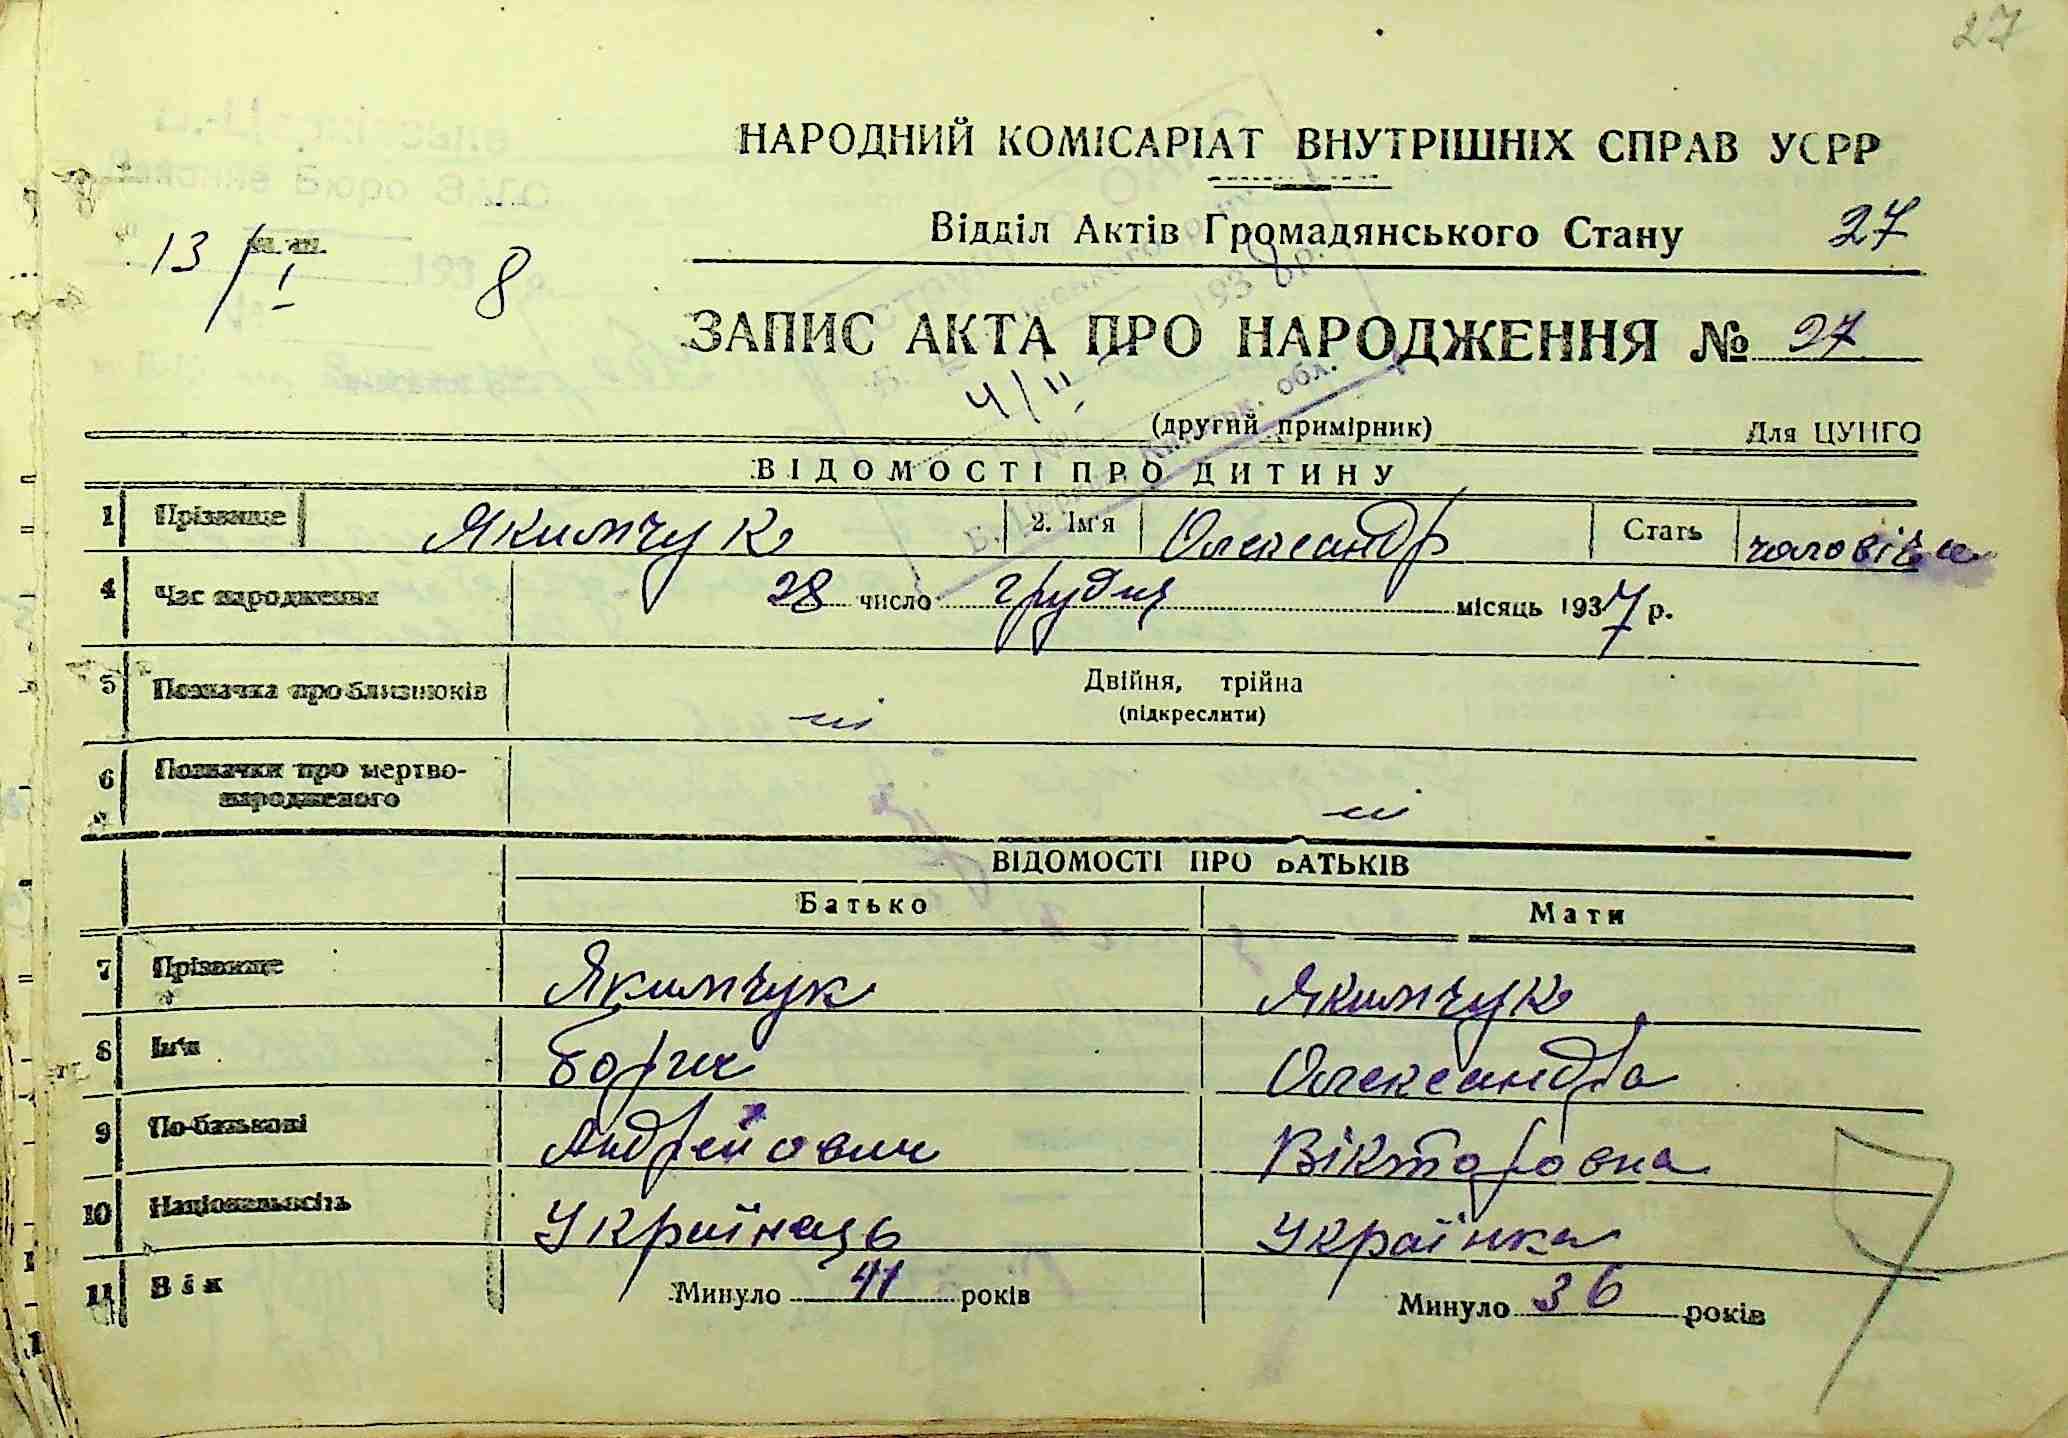 27
НАРОДНИЙ КОМІСАРІАТ ВНУТРІШНІХ СПРАВ УСРР
Відділ Актів Громадянського Стану 27
13/I 8
ЗАПИС АКТА ПРО НАРОДЖЕННЯ № 27
4/II
193 8 р.
обл.
(другий примірник) Для ЦУНГО
ВІДОМОСТІ ПРО ДИТИНУ
1 Прізвище Якимчук 2. Ім'я Олександр Стать чоловіча
4 Час народження 28 число грудня місяць 1937 р.
5 Позначка про близнюків ні Двійня, трійна
(підкреслити)
6 Позначки про мертво-
народженого ні
ВІДОМОСТІ ПРО БАТЬКІВ
Батько Мати
7 Прізвище Якимчук Якимчук
8 Ім'я Борис Олександра
9 По-батькові Андрейович Вікторовна
10 Національність Українець Українка
11 Вік Минуло 41 років Минуло 36 років